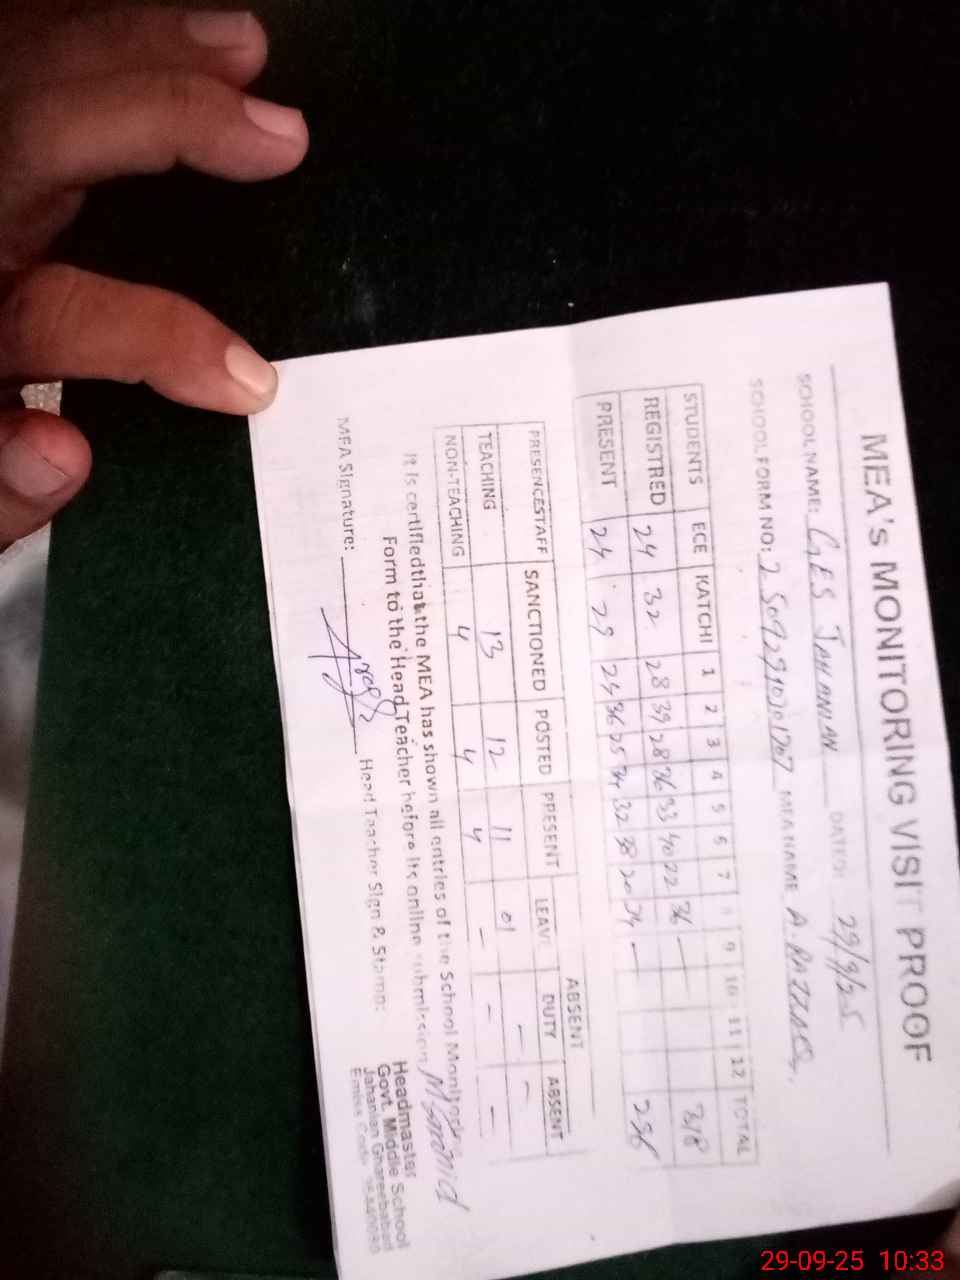 MEA's MONITORING VISIT PROOF
SCHOOL NAME: GES JAHANIAN DATED: 29/9/25
SCHOOL FORM NO: MEA NAME A. RAZZAQ
STUDENTS ECE KATCHI 1 2 3 4 5 6 7 8 9 10 11 12 TOTAL
REGISTRED 24 32 28 39 28 36 33 40 22 36 — 318
PRESENT 24 29 24 36 25 34 32 38 20 34 — 296
ABSENT
PRESENCESTAFF SANCTIONED POSTED PRESENT LEAVE DUTY ABSENT
TEACHING 13 12 11 01 — —
NON-TEACHING 4 4 4 — — —
It is certifiedthat the MEA has shown all entries of the School Monitoring
Form to the Head Teacher before its online submission
MEA Signature: Head Teacher Sign & Stamp:
Headmaster
Govt. Middle School
Jahanian Ghareebabad
Emiss Code
29-09-25 10:33